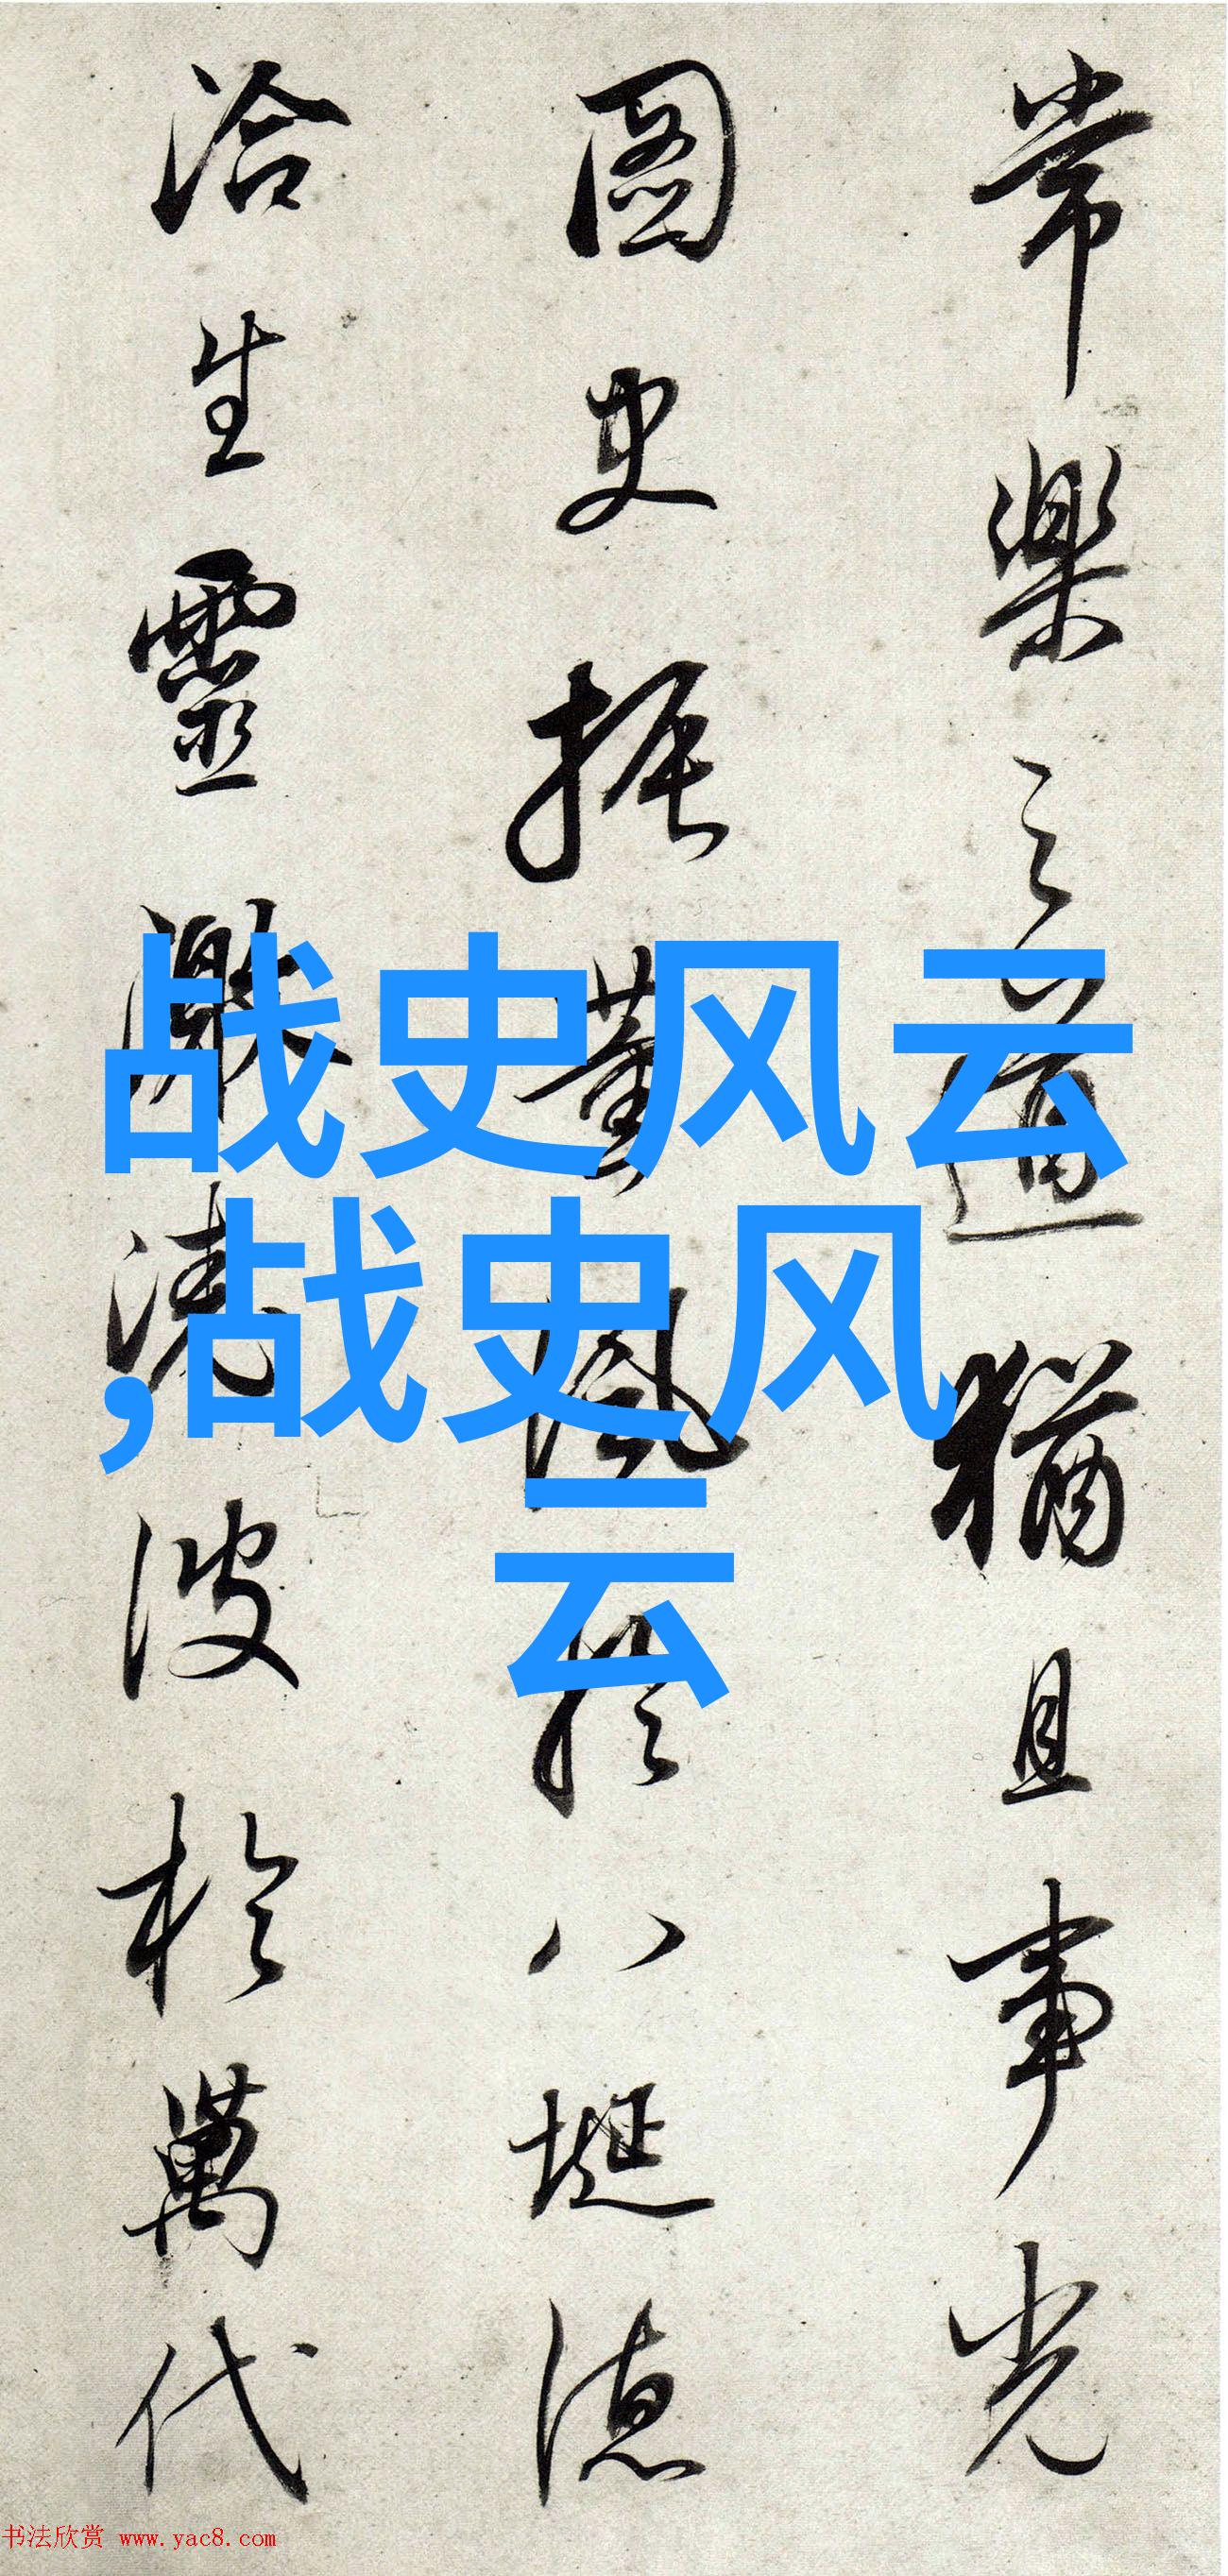 常樂之道猶且事光
圖史振董風於八埏德
洽生靈激澆波於萬代
战史风云
,战史风
云
书法欣赏 www.yac8.com